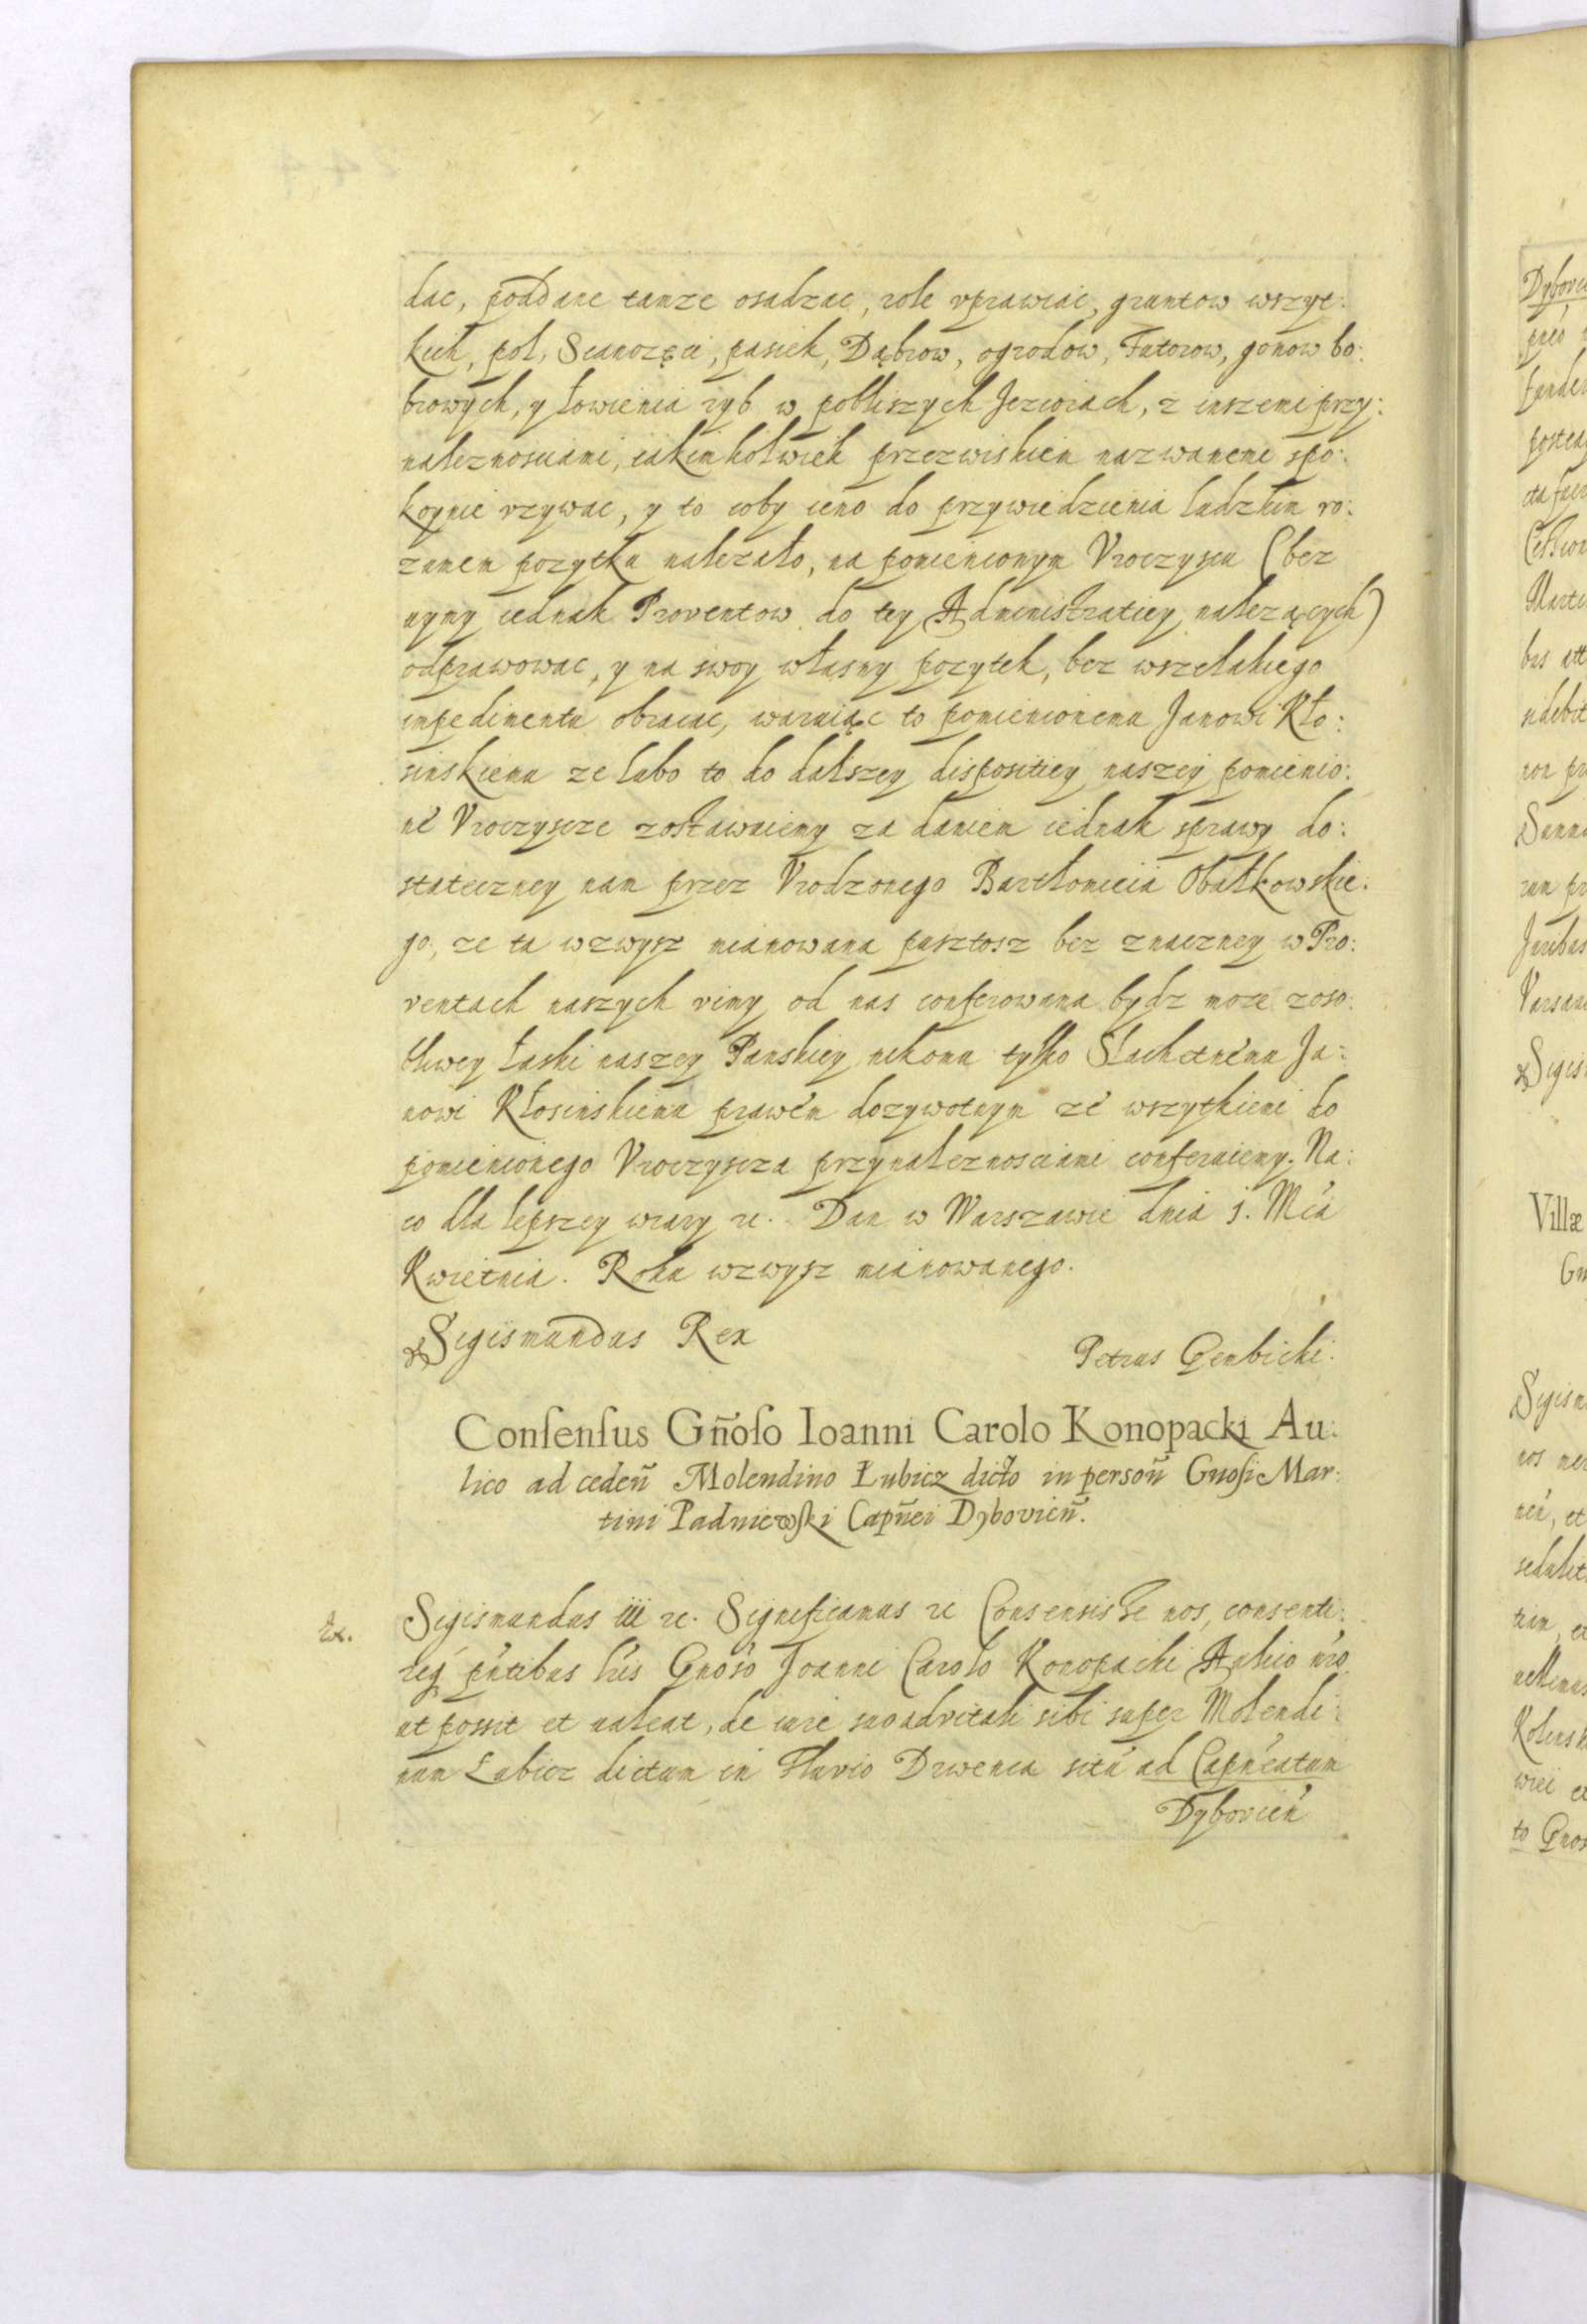 dac, poddane tamze osadzac, role vprawiac, gruntow wszyt:
kich, pol, Scianozęci, pasiek, Dąbrow, ogrodow, Futorow, gonow bo:
browych, y łowienia ryb w pobliszych Jeziorach, z inszemi przy:
naleznosciami, iakimkolwiek przezwiskiem nazwanemi spo:
koynie vzywac, y to coby ieno do przywiedzienia ludzkim ro:
zumem pozytku nalezało, na pomienionym Vroczyscu (bez
uymy iednak Proventow do tey Administratiey nalezących)
odprawowac, y na swoy własny pozytek, bez wszelakiego
impedimentu obracac, waruiąc to pomienionemu Janowi Kło:
sinskiemu ze lubo to do dalszey dispositiey naszey pomienio:
né Vroczyscze zostawuiemy za daniem iednak sprawy do:
stateczney nam przez Vrodzonego Bartłomieia Obałkowskie:
go, ze ta wzwysz mianowana pusztosz bez znaczney w Pro:
ventach naszych vimy od nas conferowana bydz moze zoso:
bliwey łaski naszey Panskiey nikomu tylko Slachetnému Ja:
nowi Kłosinskiemu prawém dozywotnym zé wszytkiemi do
pomienionego Vroczyscza przynaleznosciami conferuiemy. Na:
co dla lepszey wiary etc. Dan w Warszawie dnia 1. Mca
Kwietnia. Roku wzwysz mianowanego.
Sigismundus Rex
Petrus Gembicki.
Consensus Gn̄oso Ioanni Carolo Konopacki Au:
lico ad ceden̄ Molendino Łubicz dicto in person̄ Gnosi Mar:
tini Padniewski Capn̄ei Dybovien̄.
Ex.
Sigismundus iii etc. Significamus etc Consensisse nos, consenti:
req' pn̄tibus lr̄is Gnoso Joanni Carolo Konopacki Aulico nr̄o
ut possit et valeat, de iure suo advitali sibi super Molendi:
num Lubicz dictum in Fluvio Drwenca situ ad Capn̄eatum
Dybovien̄